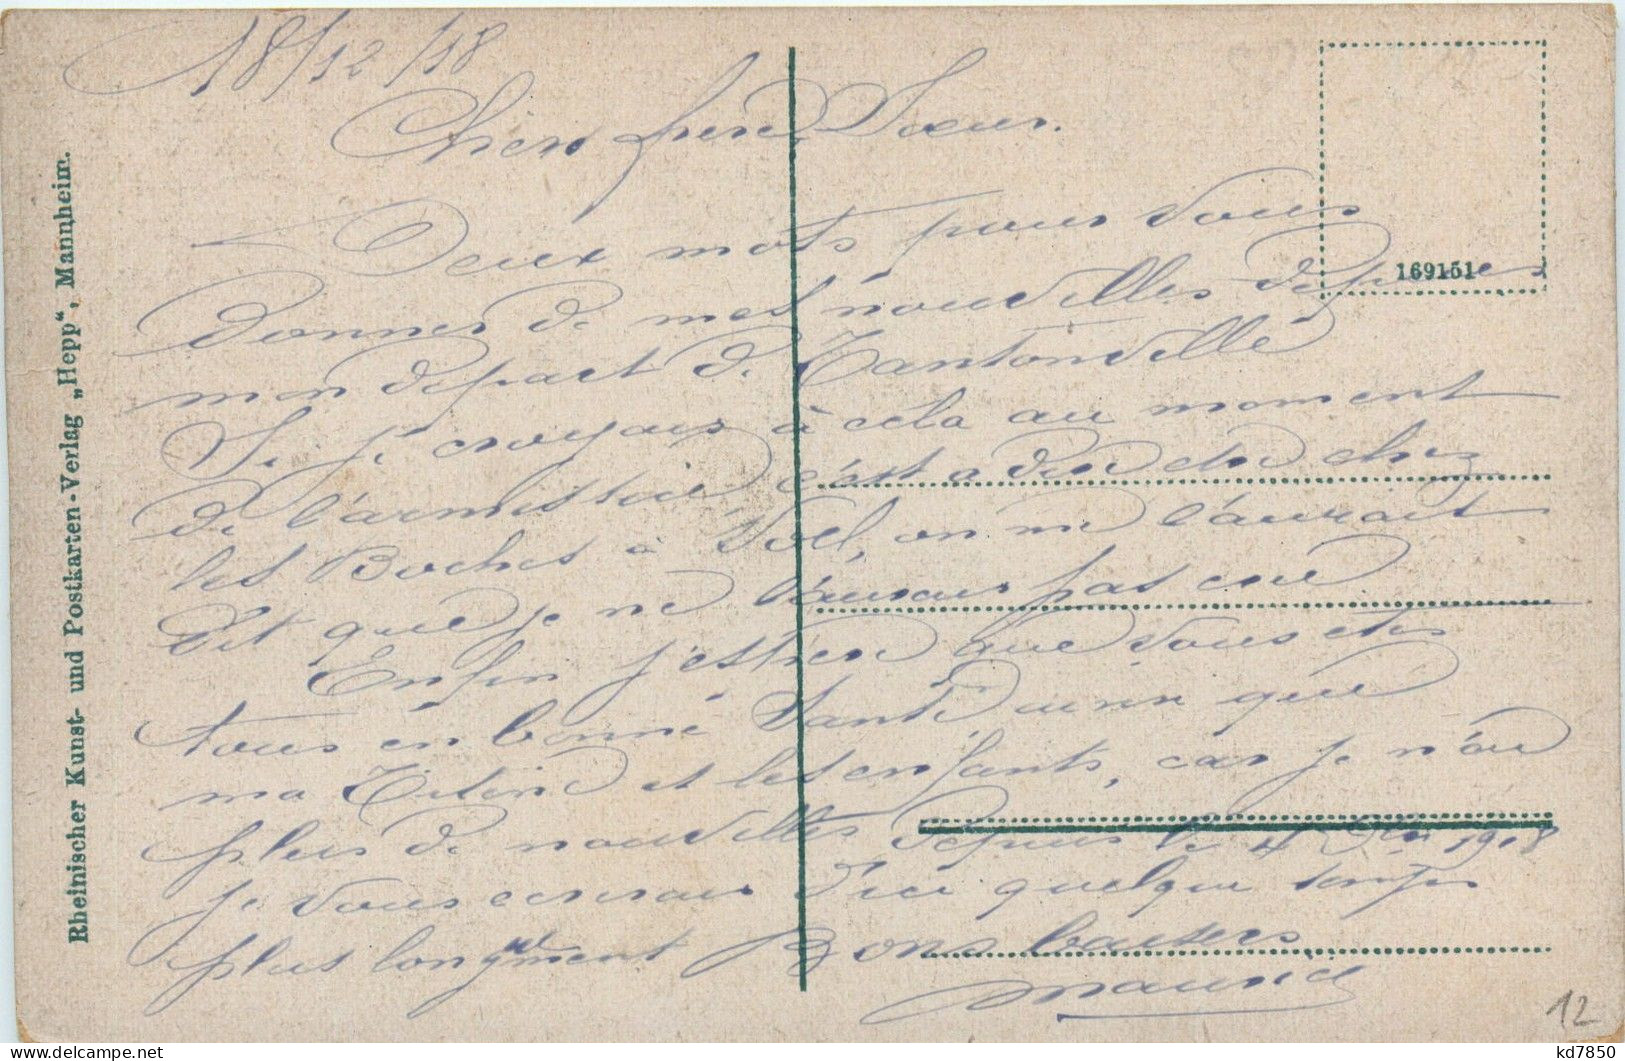 18/12/18
Chers frère Soeur.
Deux mots pour vous
donner de mes nouvelles depuis
mon départ de Tantonville
Si je croyais à cela au moment
de l'armistice c'est a dire chez
les Boches à on me l'aurait
dit que je ne l'aurais pas cru
Enfin j'espère que vous etes
tous en bonne Santé ainsi que
ma Titine et les enfants, car je n'ai
plus de nouvelles depuis le 1918
je vous ecrirai d'ici quelque temps
plus longuement Bons baisers
Maurice
Rheinischer Kunst- und Postkarten-Verlag „Hepp“, Mannheim.
169151
12
kd7850